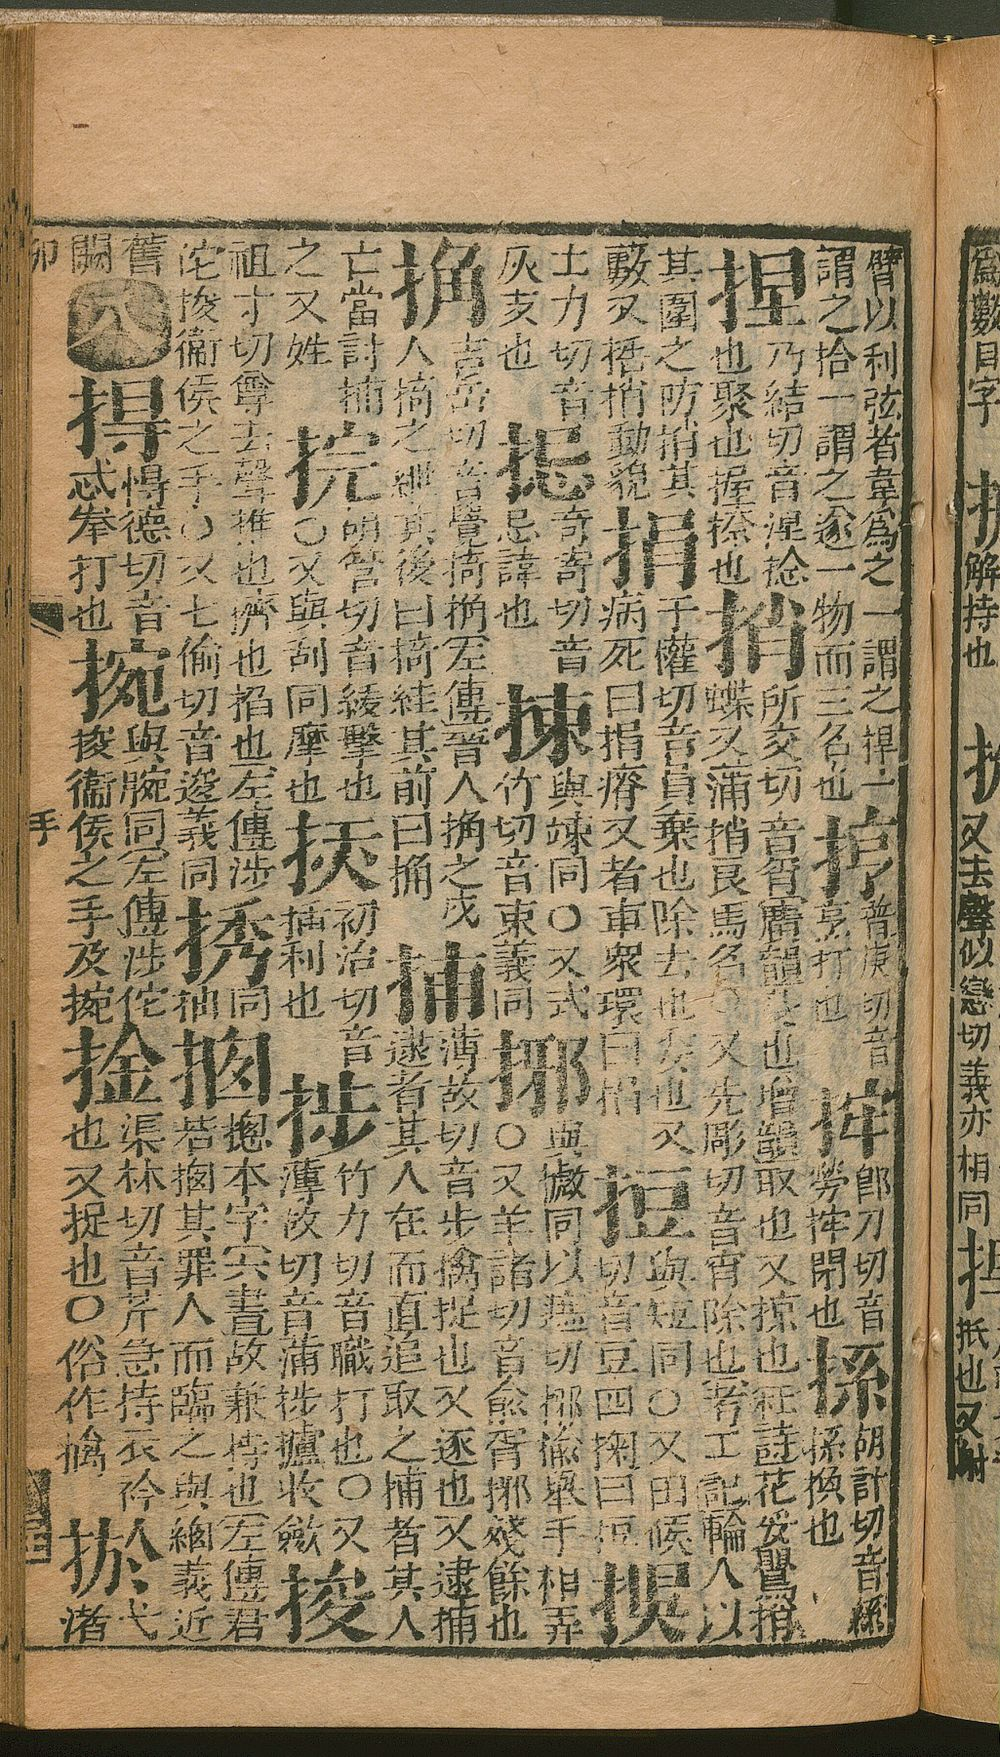 臂以利弦者韋為之一謂之捍一謂之拾一謂之遂一物而三名也 普庚切音烹打也 㧯 郎刀切音勞㧯閉也 胡計切音係係換也
捏 乃結切音涅捻也聚也握捺也 捎 所交切音廣韻芟也增韻取也又掠也杜詩花妥鶯捎蝶又蒲捎良馬名〇又先彫切音宵除也考工記輪人以
其圍之阞捎其藪又捎動貌 捐 于權切音員棄也除去也又病死曰捐瘠又者車眾環曰捐 與短同〇又田候切音豆四掬曰
土力切音灰支也 奇寄切音忌諱也 捒 與竦同〇又式竹切音束義同 捓 與擨同以遮切捓揄舉手相弄〇又羊諸切音俞胥捓殘餘也
捔 吉岳切音覺掎捔左傳晉人捔之戎人掎之其後曰掎絓其前曰捔 捕 薄故切音步擒捉也又逐也又逮捕逮者其人在而直追取之捕者其人
亡當討捕之又姓 捖 胡管切音緩擊也〇又與刮同摩也 初治切音插利也 捗 竹力切音職打也〇又薄故切音蒲捗攎收斂 捘
祖寸切尊去聲推也擠也掐也左傳涉佗捘衛侯之手〇又七倫切音逡義同 同抽 本字故兼持也左傳君若其罪人而臨之與綑義近
舊闕 八 得德切音忒拳打也 捥 與腕同左傳涉佗捘衛侯之手及捥 捦 渠林切音芹急持衣衿也又捉也〇俗作擒 弋渚
卯 手
為數目字 解持也 又去聲似戀切義亦相同 抵也又